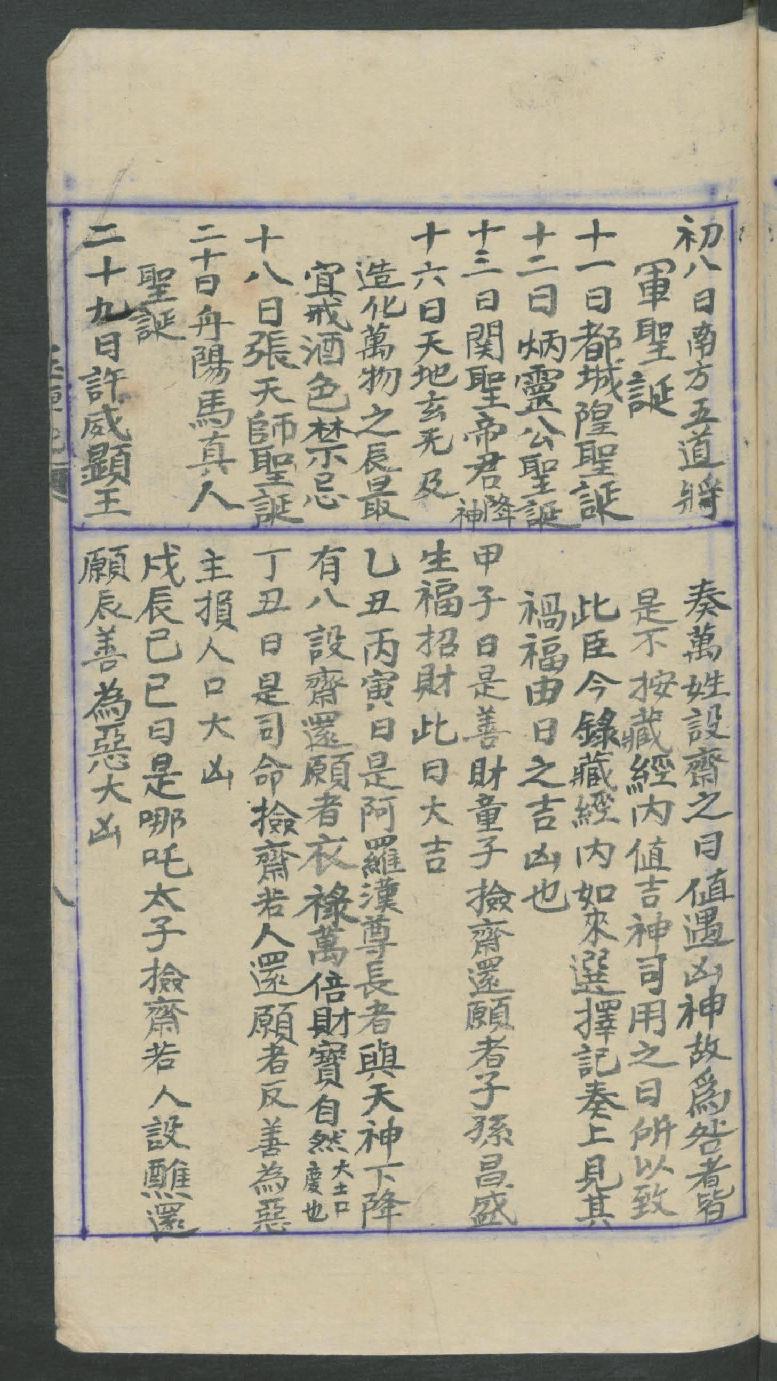 初八日南方五道將
軍聖誕
十一日都城隍聖誕
十二日炳靈公聖誕
十三日関聖帝君降神
十六日天地玄炁及
造化萬物之辰最
宜戒酒色禁忌
十八日張天師聖誕
二十日丹陽馬真人
聖誕
二十九日許威顯王
奏萬姓設齋之日值遇凶神故爲咎者皆
是不按藏經內值吉神司用之日所以致
此臣今錄藏經內如來選擇記奏上見其
禍福由日之吉凶也
甲子日是善財童子撿齋還願者子孫昌盛
生福招財此日大吉
乙丑丙寅日是阿羅漢尊長者與天神下降
有人設齋還願者衣祿萬倍財寶自然大士口慶也
丁丑日是司命撿齋若人還願者反善為惡
主損人口大凶
戊辰己巳日是哪吒太子撿齋若人設醮還
願辰善為惡大凶